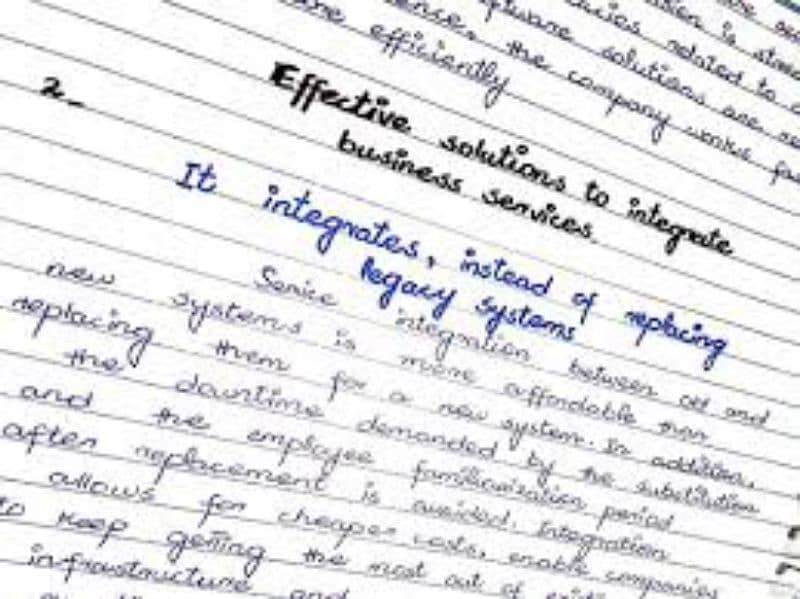 is
software solutions are
related to
the company works
efficiently
2_
Effective solutions to integrate
business services.
It integrates, instead of replacing
legacy systems
Service integration between old and
new systems is more affordable than
replacing them for a new system. In addition,
the downtime demanded by the substitution
and the employee familiarization period
after replacement is avoided. Integration
allows for cheaper costs, enable companies
to keep getting the most out of
infrastructure and